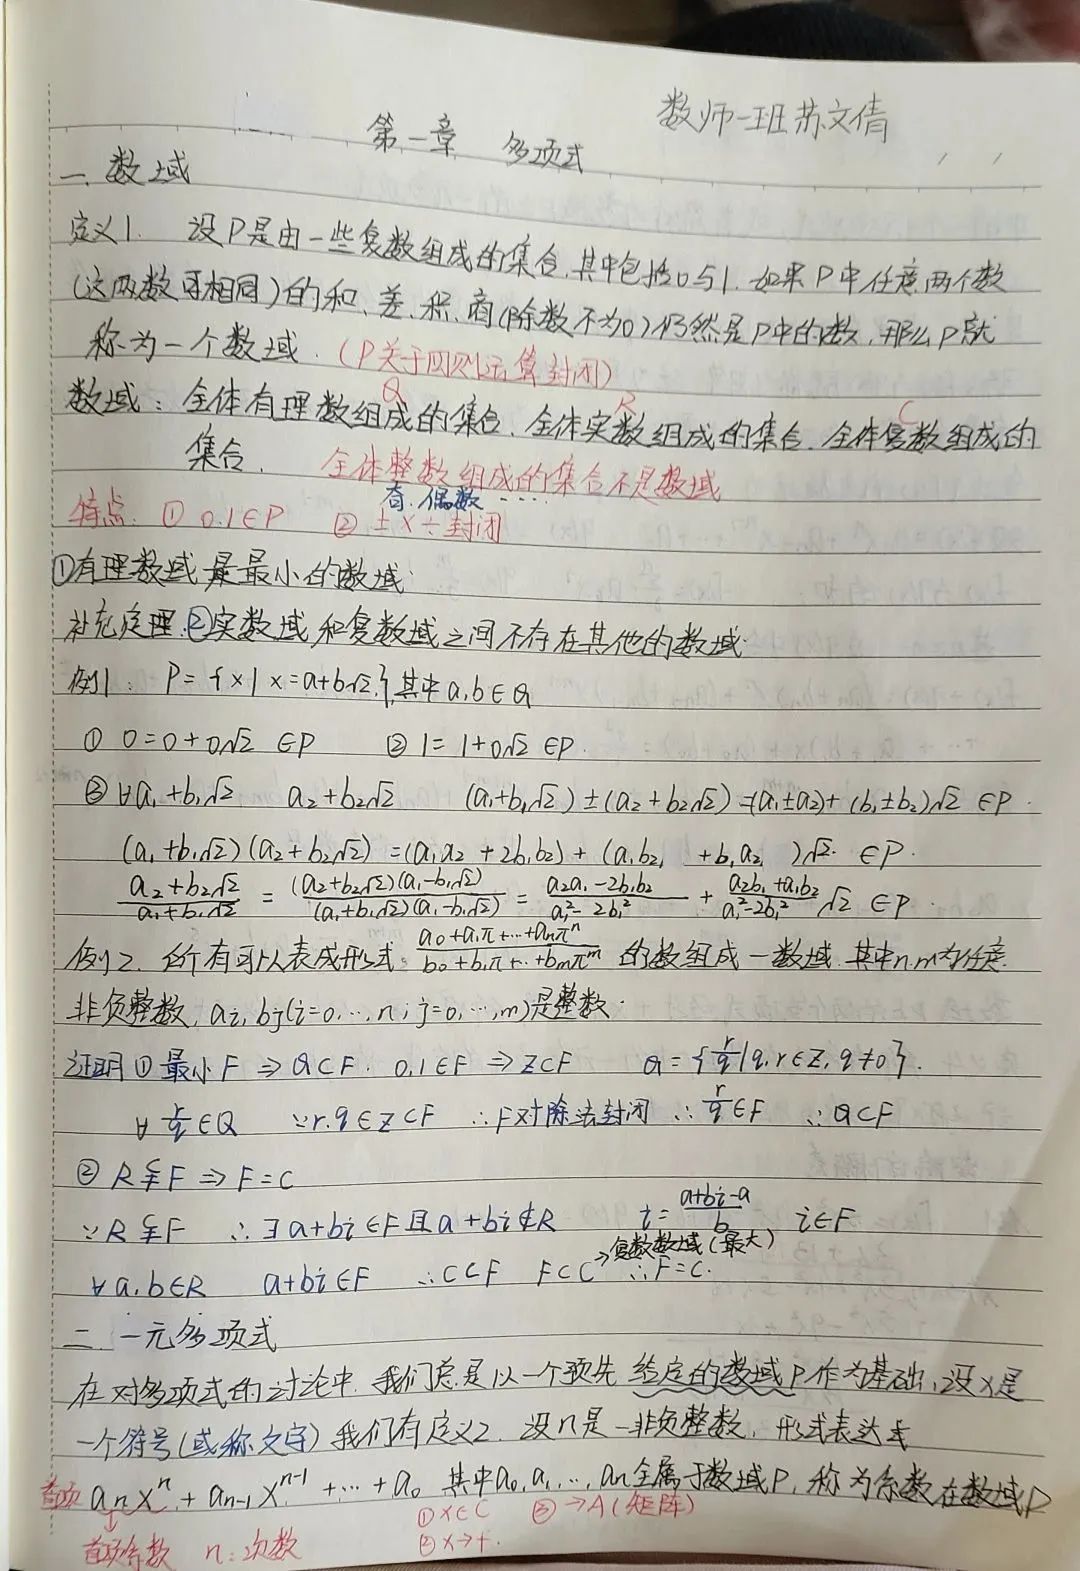 数师一班苏文倩
第一章 多项式
一. 数域
定义1. 设P是由一些复数组成的集合.其中包括0与1.如果P中任意两个数
(这两数可相同)的和、差、积、商(除数不为0)仍然是P中的数,那么P就
称为一个数域.(P关于四则运算封闭)
Q R C
数域:全体有理数组成的集合、全体实数组成的集合、全体复数组成的
集合. 全体整数组成的集合不是数域
奇.偶数……
特点: ① 0.1∈P ② ±×÷封闭
①有理数域是最小的数域.
补充定理.②实数域和复数域之间不存在其他的数域.
例1: P={x|x=a+b√2,}其中a,b∈Q
① 0=0+0√2 ∈P ② 1=1+0√2 ∈P.
③ ∀a₁+b₁√2 a₂+b₂√2 (a₁+b₁√2)±(a₂+b₂√2)=(a₁±a₂)+(b₁±b₂)√2 ∈P.
(a₁+b₁√2)(a₂+b₂√2)=(a₁a₂+2b₁b₂)+(a₁b₂+b₁a₂)√2. ∈P.
(a₂+b₂√2)/(a₁+b₁√2) = (a₂+b₂√2)(a₁-b₁√2)/(a₁+b₁√2)(a₁-b₁√2) = (a₂a₁-2b₁b₂)/(a₁²-2b₁²) + (a₂b₁+a₁b₂)/(a₁²-2b₁²) √2 ∈P.
例2. 所有可以表成形式 (a₀+a₁π+…+aₙπⁿ)/(b₀+b₁π+…+bₘπᵐ) 的数组成一数域.其中n.m为任意
非负整数, aᵢ,bⱼ(i=0,…,n;j=0,…,m)是整数.
证明 ① 最小F ⇒ Q⊂F. 0,1∈F ⇒ Z⊂F Q={r/q|q,r∈Z,q≠0}.
∀ r/q∈Q ∵r.q∈Z⊂F ∴F对除法封闭 ∴ r/q∈F ∴Q⊂F
② R⊊F ⇒ F=C
∵R⊊F ∴∃a+bi∈F且a+bi∉R i=(a+bi-a)/b i∈F
→复数数域(最大)
∀a.b∈R a+bi∈F ∴C⊂F F⊂C ∴F=C.
二. 一元多项式
在对多项式的讨论中,我们总是以一个预先给定的数域P作为基础,设x是
一个符号(或称文字)我们有定义2. 设n是一非负整数, 形式表达式
首项 aₙxⁿ+aₙ₋₁xⁿ⁻¹+…+a₀ 其中a₀,a₁,…,aₙ全属于数域P,称为系数在数域P
↓ ①x∈C ③→A(矩阵)
首项系数 n:次数 ②x→f.